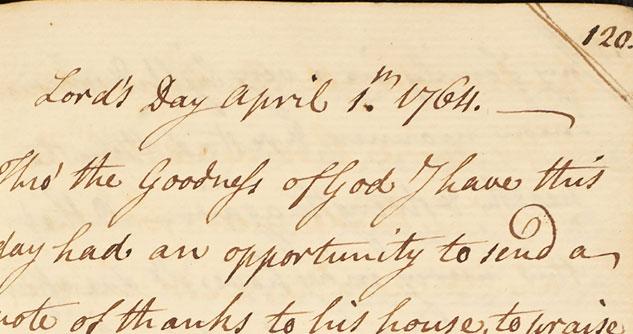 120.
Lord's Day April 1.m 1764.
Thro' the Goodneſs of God I have this
day had an opportunity to send a
note of thanks to his house, to praise